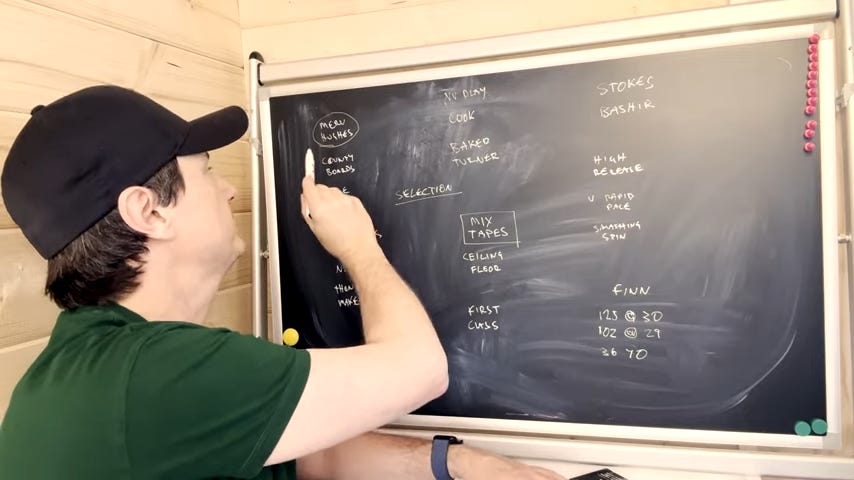 MERV
HUGHES
COUNTY
BOARDS
NO PLAY
COOK
BAKED
TURNER
SELECTION
MIX
TAPES
CEILING
FLOOR
FIRST
CLASS
STOKES
BASHIR
HIGH
RELEASE
V RAPID
PACE
SMASHING
SPIN
FINN
125 @ 30
102 @ 29
36 70